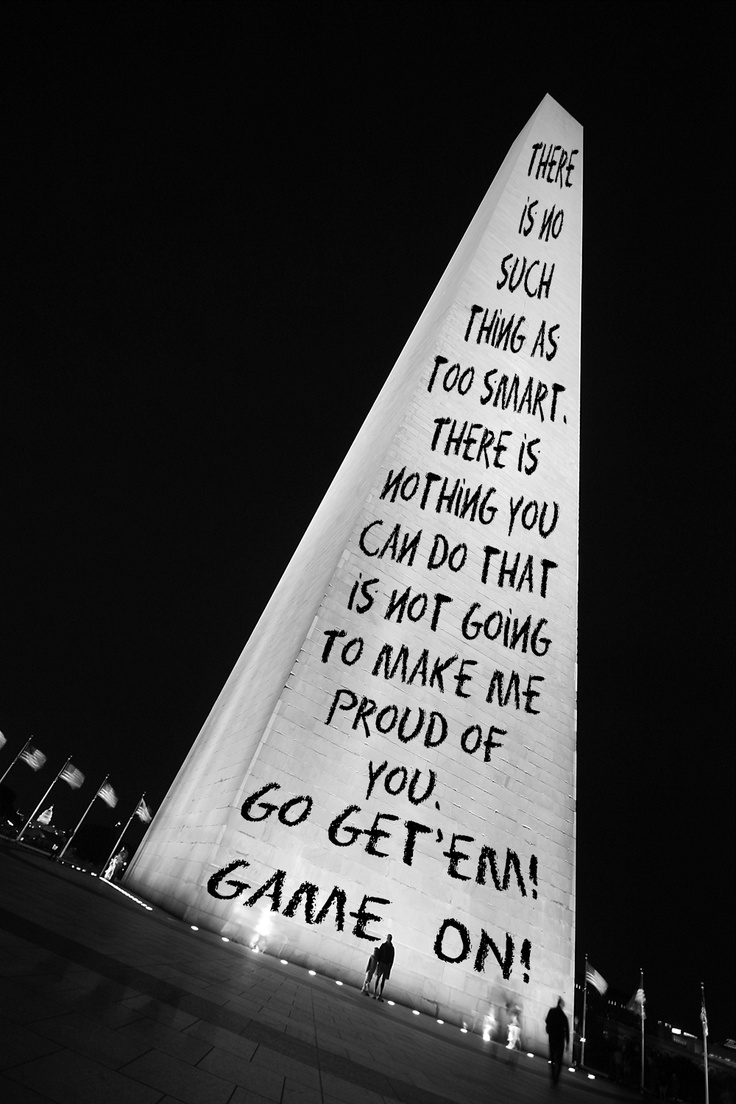 THERE
iS NO
SUCH
THiNG AS
TOO SMART.
THERE iS
NOTHiNG YOU
CAN DO THAT
iS NOT GOiNG
TO MAKE ME
PROUD OF
YOU.
GO GET'EM!
GAME ON!